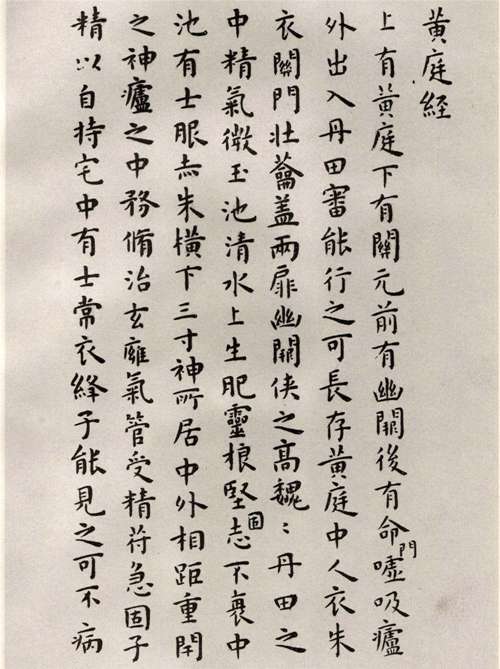 黃庭経
上有黃庭下有關元前有幽闕後有命門噓吸廬
外出入丹田審能行之可長存黃庭中人衣朱
衣關門壯蘥盖兩扉幽闕俠之高魏〻丹田之
中精氣微玉池清水上生肥靈根堅固志不衰中
池有士服赤朱橫下三寸神所居中外相距重閇
之神廬之中務脩治玄廱氣管受精符急固子
精以自持宅中有士常衣絳子能見之可不病